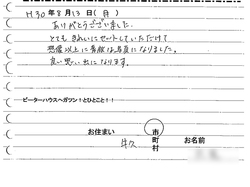 H30年8月13日(月)
ありがとうございました。
とてもきれいにセットしていただけて
想像以上に素敵な写真になりました。
良い思い出になります。
ピーターハウスへガツン!とひとこと!!
お住まい 牛久 市町村 お名前